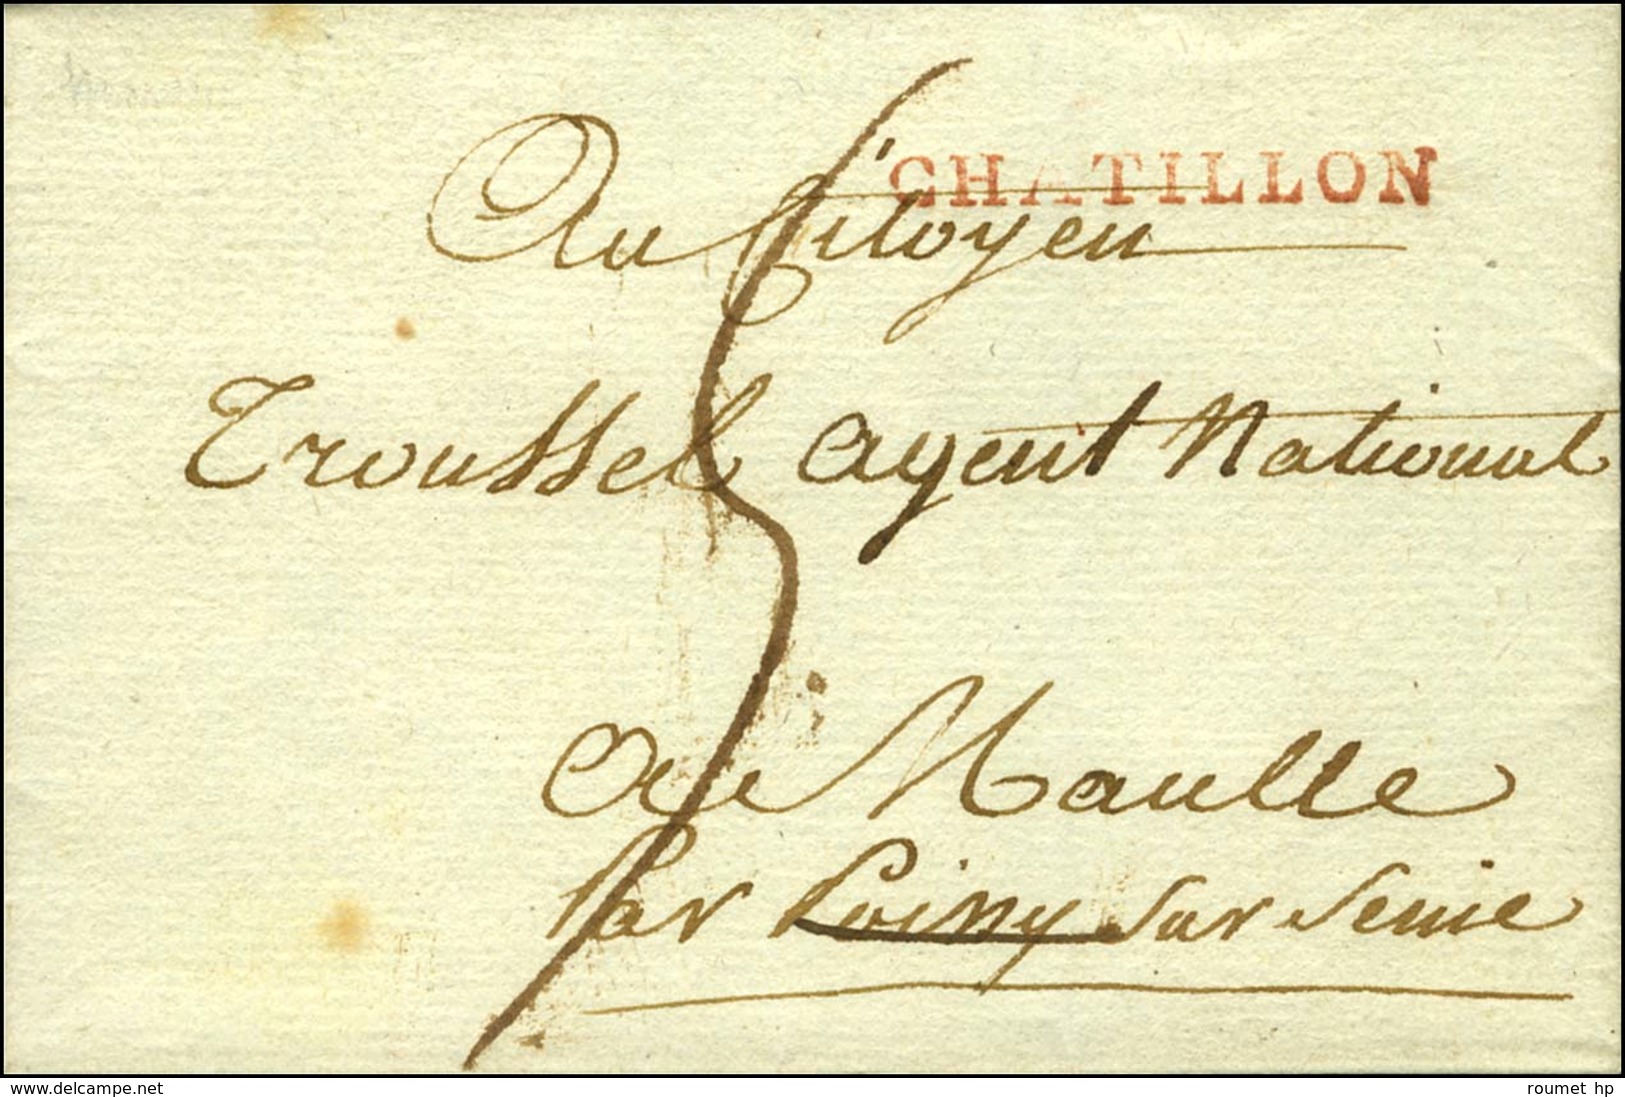 CHATILLON
Au Citoyen
Troussel agent National
a Maulle
Par Poissy sur Seine
5
delcampe.net
roumet hp